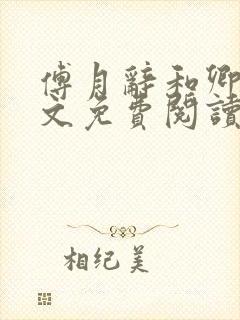 傅月辭和卿
文免費閱讀
相纪美